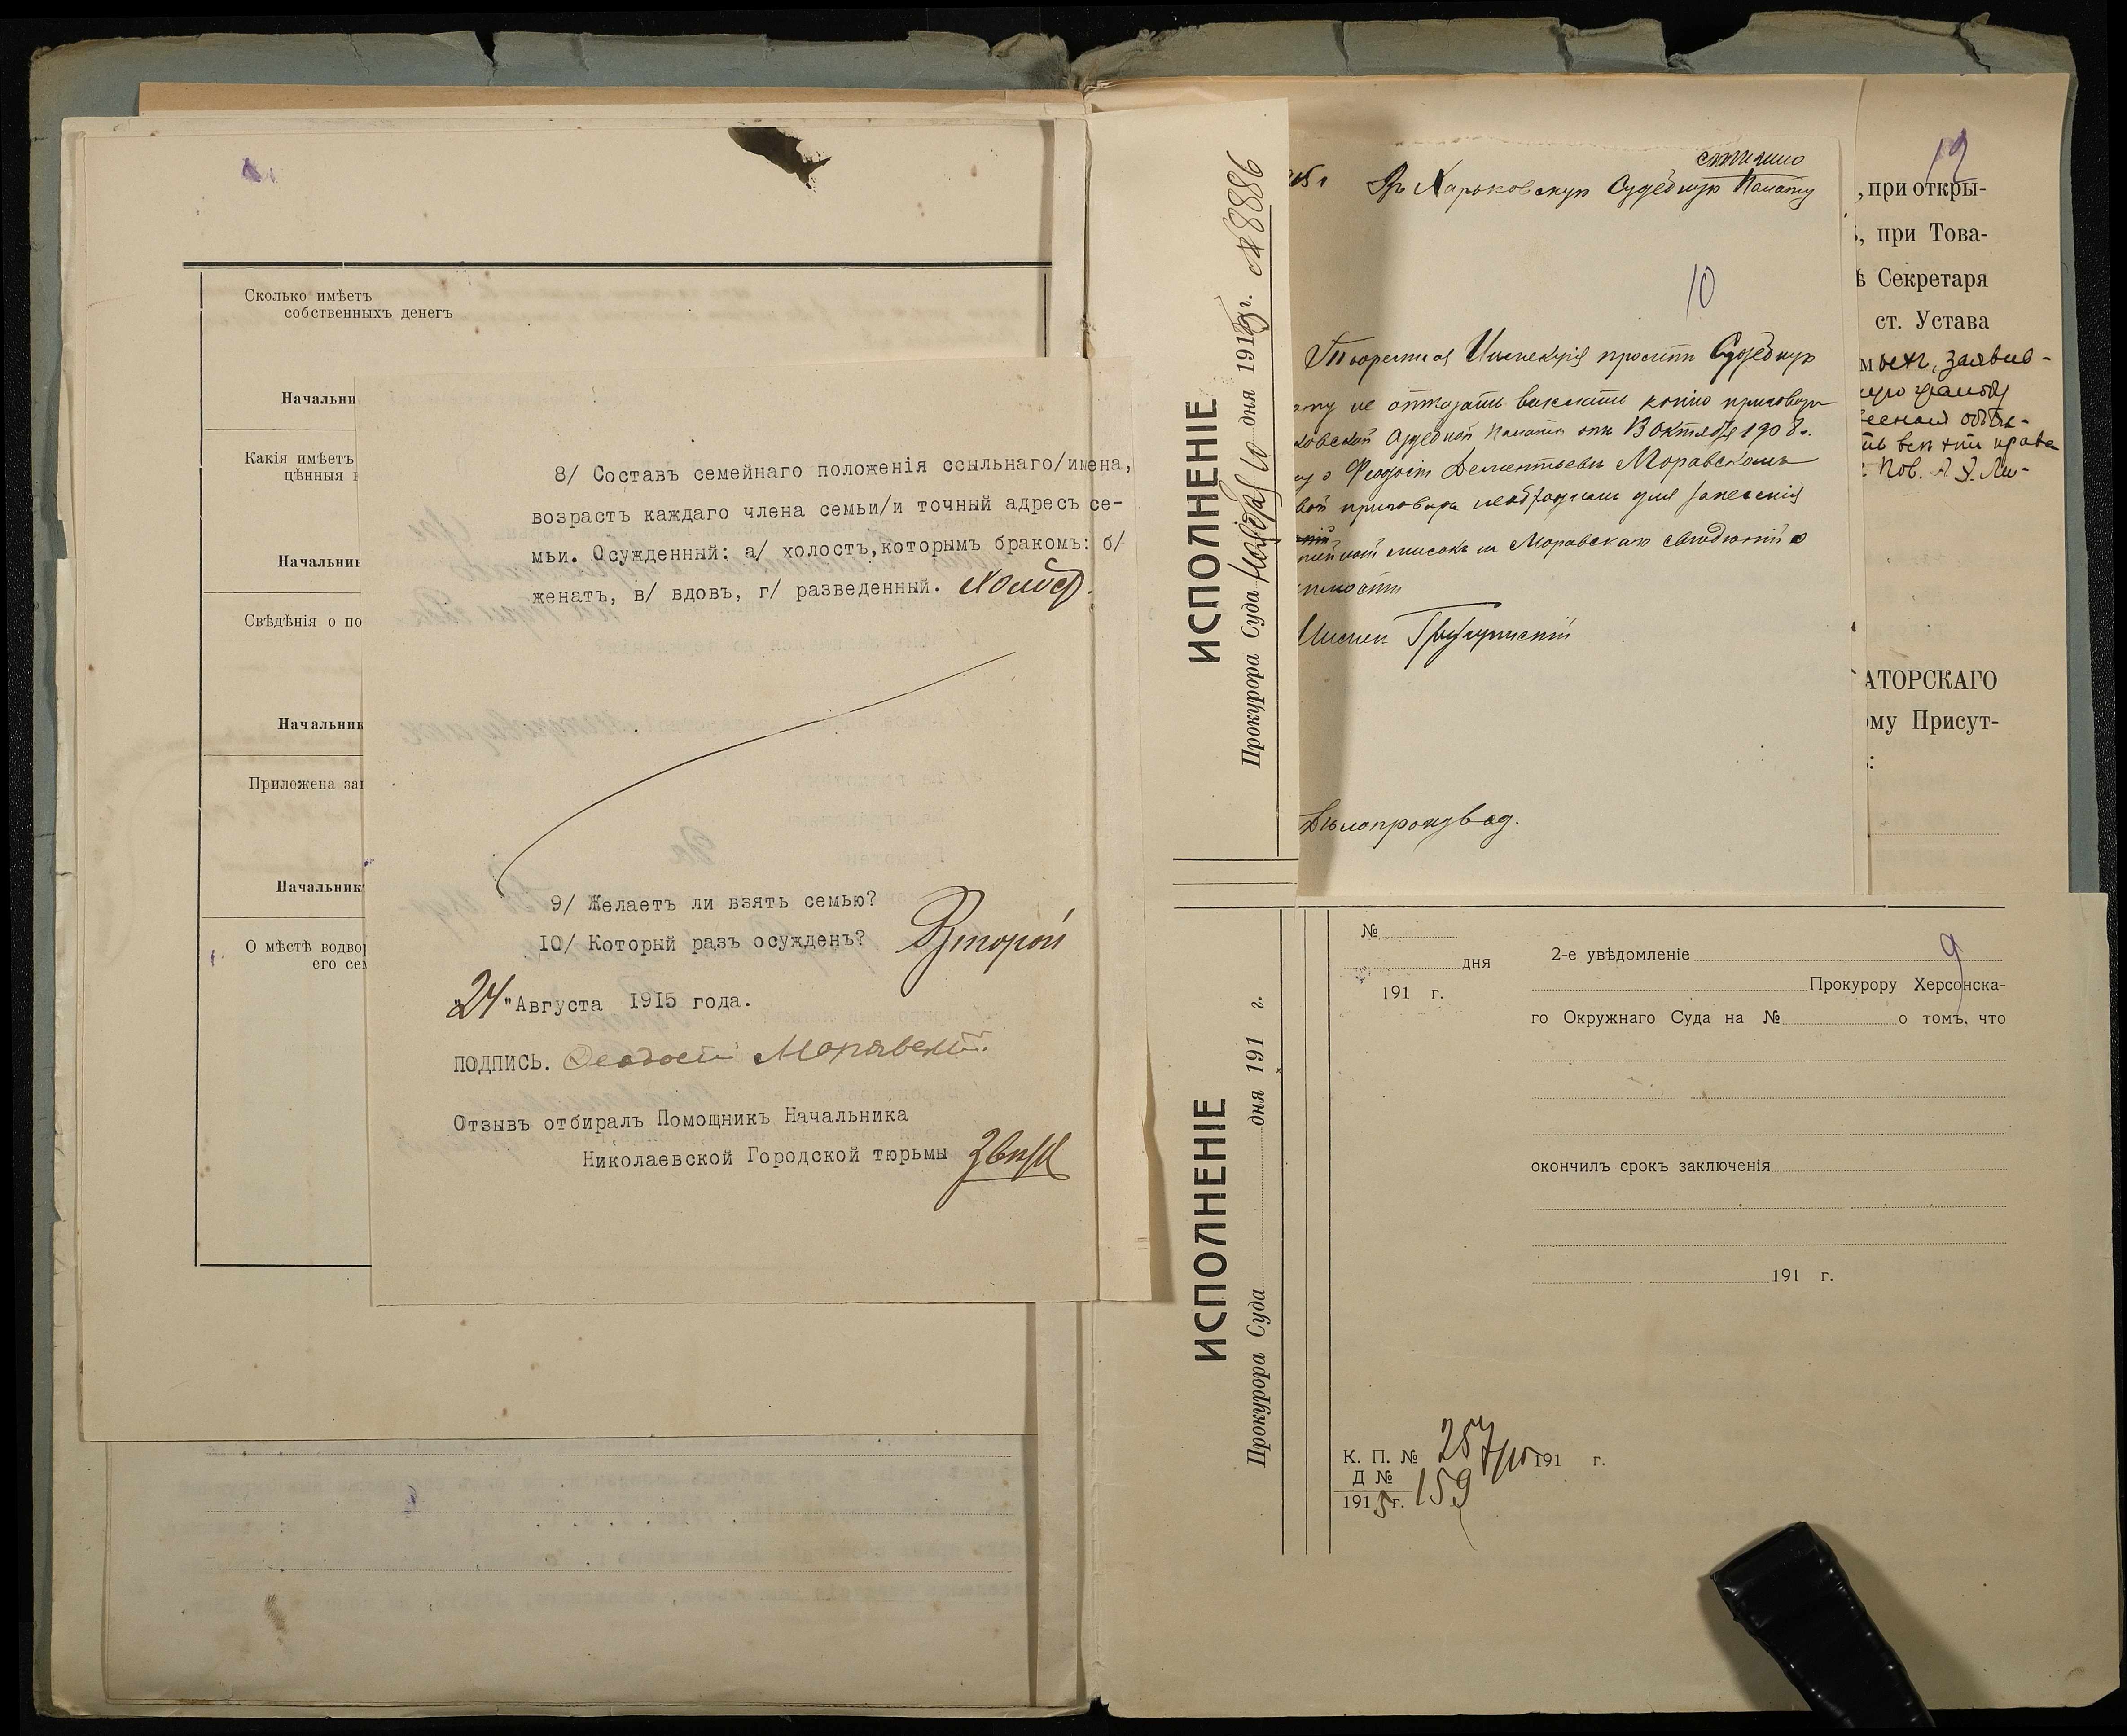 Сколько имѣетъ
собственныхъ денегъ
Начальни
Какія имѣетъ
цѣнныя
Начальник
Свѣдѣнія о по
Начальник
Приложена
Начальник
О мѣстѣ водвор
его сем
8/ Составъ семейнаго положенія ссыльнаго/имена,
возрастъ каждаго члена семьи/и точный адресъ се-
мьи. Осужденный: а/ холостъ,которымъ бракомъ: б/
женатъ, в/ вдовъ, г/ разведенный. Холост.
9/ Желаетъ ли взять семью?
10/ Который разъ осужденъ? Второй
"24" Августа 1915 года.
ПОДПИСЬ. Феодосій Моравскій.
Отзывъ отбиралъ Помощникъ Начальника
Николаевской Городской тюрьмы
ИСПОЛНЕНІЕ
Прокурора Суда дня 1915 г. № 8886
спѣшно
Въ Харьковскую Судебную Палату
10
Тюремная Инспекція проситъ Судебную
не отказать выслать копію приговора
Судебной Палаты отъ 13 октября 1908 г.
о Феодосіи Дементьевѣ Моравскомъ
приговора необходима для занесенія
списокъ Моравскаго свѣдѣній о
Дѣлопроизвод.
12
, при откры-
, при Това-
ѣ Секретаря
ст. Устава
заявив-
права
Пов.
АТОРСКАГО
ому Присут-
:
ИСПОЛНЕНІЕ
Прокурора Суда дня 191 г.
№
дня
191 г.
9
2-е увѣдомленіе
Прокурору Херсонска-
го Окружнаго Суда на № о томъ, что
окончилъ срокъ заключенія
191 г.
К. П. № 257/15 191 г.
Д № 159
1915 г.